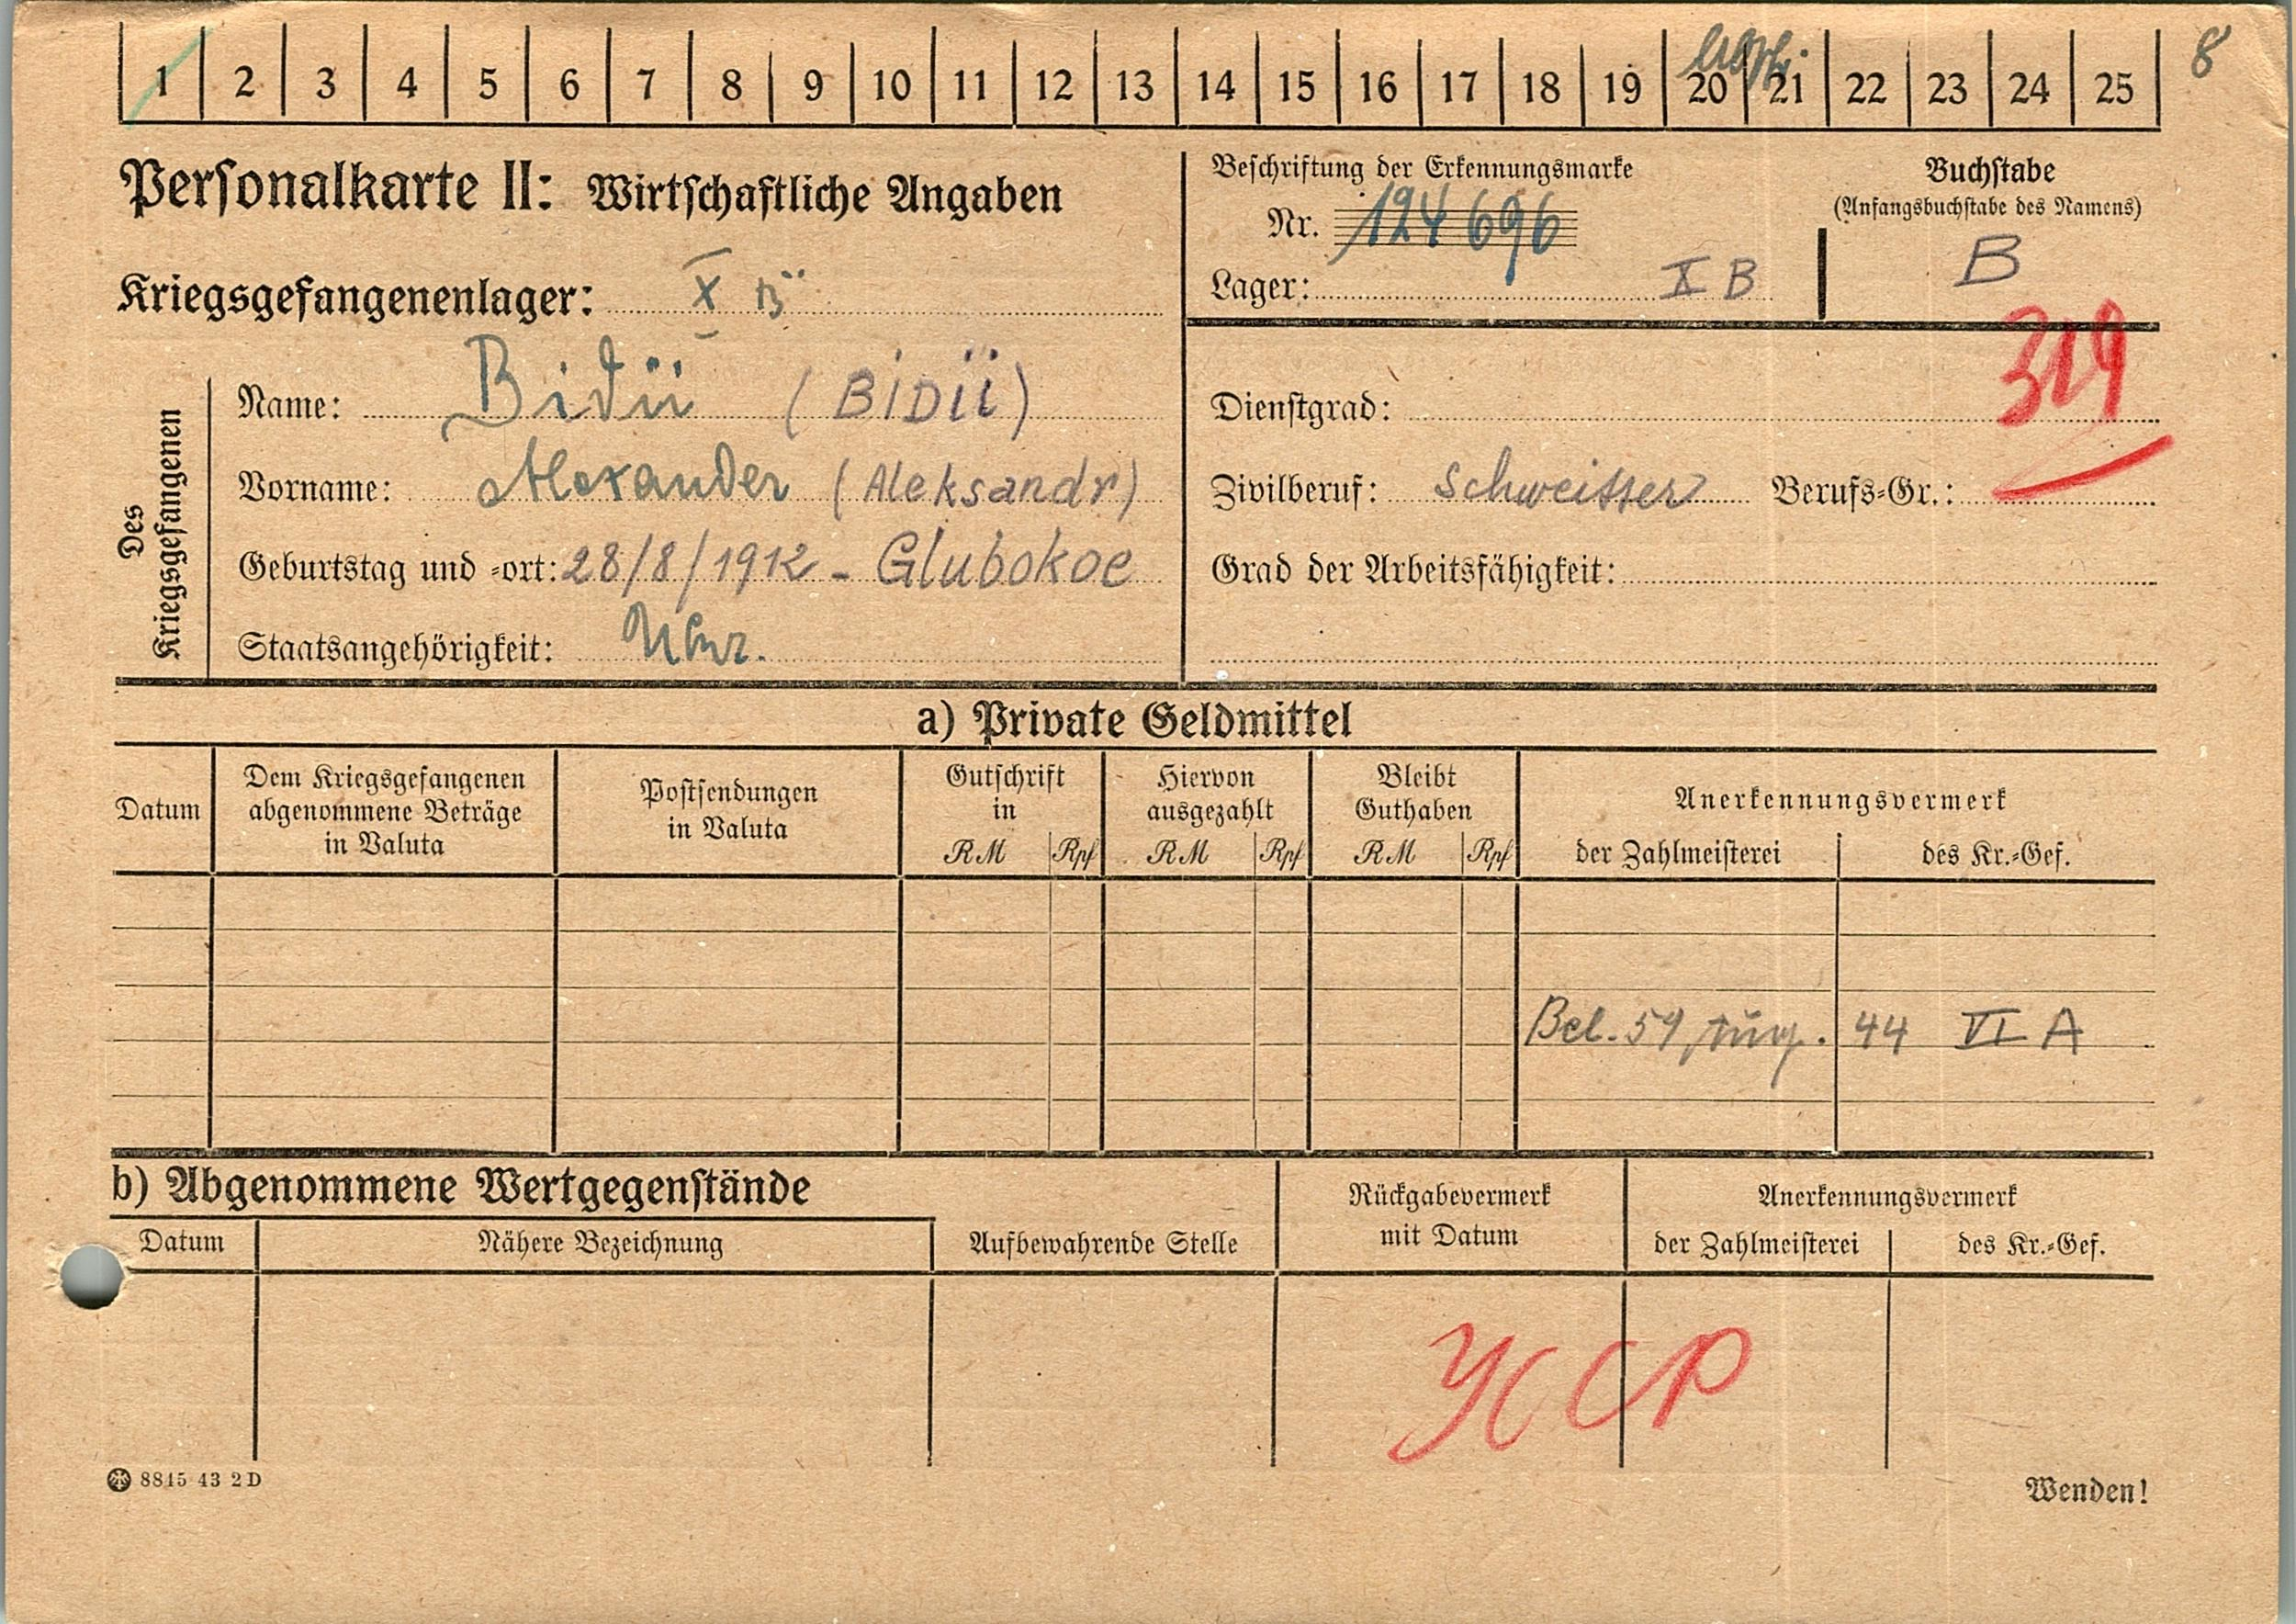 1 2 3 4 5 6 7 8 9 10 11 12 13 14 15 16 17 18 19 20 21 22 23 24 25 8
Personalkarte II: Wirtschaftliche Angaben
Beschriftung der Erkennungsmarke
Nr. 124696
Lager: X B
Buchstabe
(Anfangsbuchstabe des Namens)
B
Kriegsgefangenenlager: X B
Des Kriegsgefangenen
Name: Bidii (BIDII)
Vorname: Alexander (Aleksandr)
Geburtstag und =ort: 28/8/1912 - Glubokoe
Staatsangehörigkeit: Ukr.
319
Dienstgrad:
Zivilberuf: Schweisser Berufs=Gr.:
Grad der Arbeitsfähigkeit:
a) Private Geldmittel
Datum
Dem Kriegsgefangenen
abgenommene Beträge
in Valuta
Postsendungen
in Valuta
Gutschrift
in
RM Rpf
Hiervon
ausgezahlt
RM Rpf
Bleibt
Guthaben
RM Rpf
Anerkennungsvermerk
der Zahlmeisterei des Kr.=Gef.
Bel. 59 44 VI A
b) Abgenommene Wertgegenstände
Datum
Nähere Bezeichnung
Aufbewahrende Stelle
Rückgabevermerk
mit Datum
Anerkennungsvermerk
der Zahlmeisterei des Kr.=Gef.
УССР
8815 43 2D
Wenden!